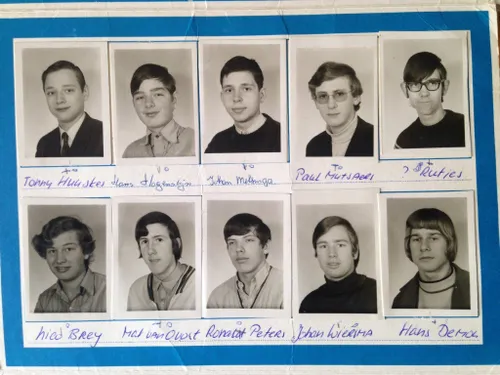 Tonny Huijskes Hans Hogenelst Johan Mellinga Paul Mutsaers ? Rutjes
Nico Brey Mat van Oorst Ronald Peters Johan Wiersma Hans Demol